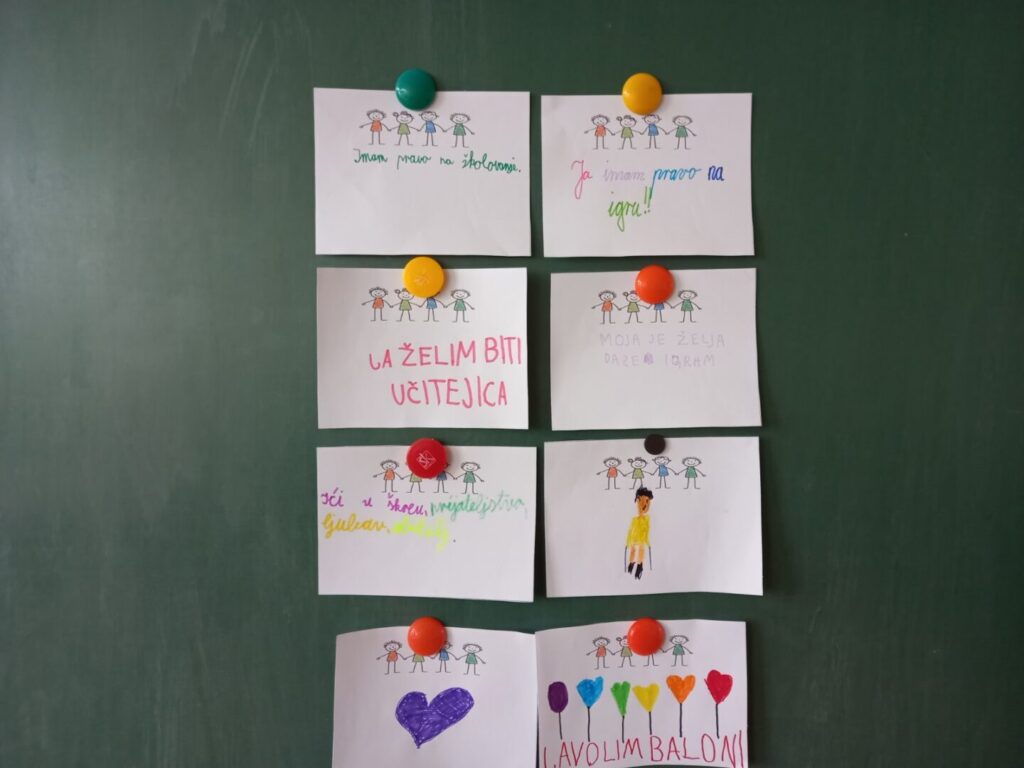 Imam pravo na školovanje.
Ja imam pravo na
igru!!
JA ŽELIM BITI
UČITEJICA
MOJA JE ŽELJA
DAZE IGRAM
Ići u školu, prijateljstvo,
ljubav, obitelj.
JAVOLIM BALONI